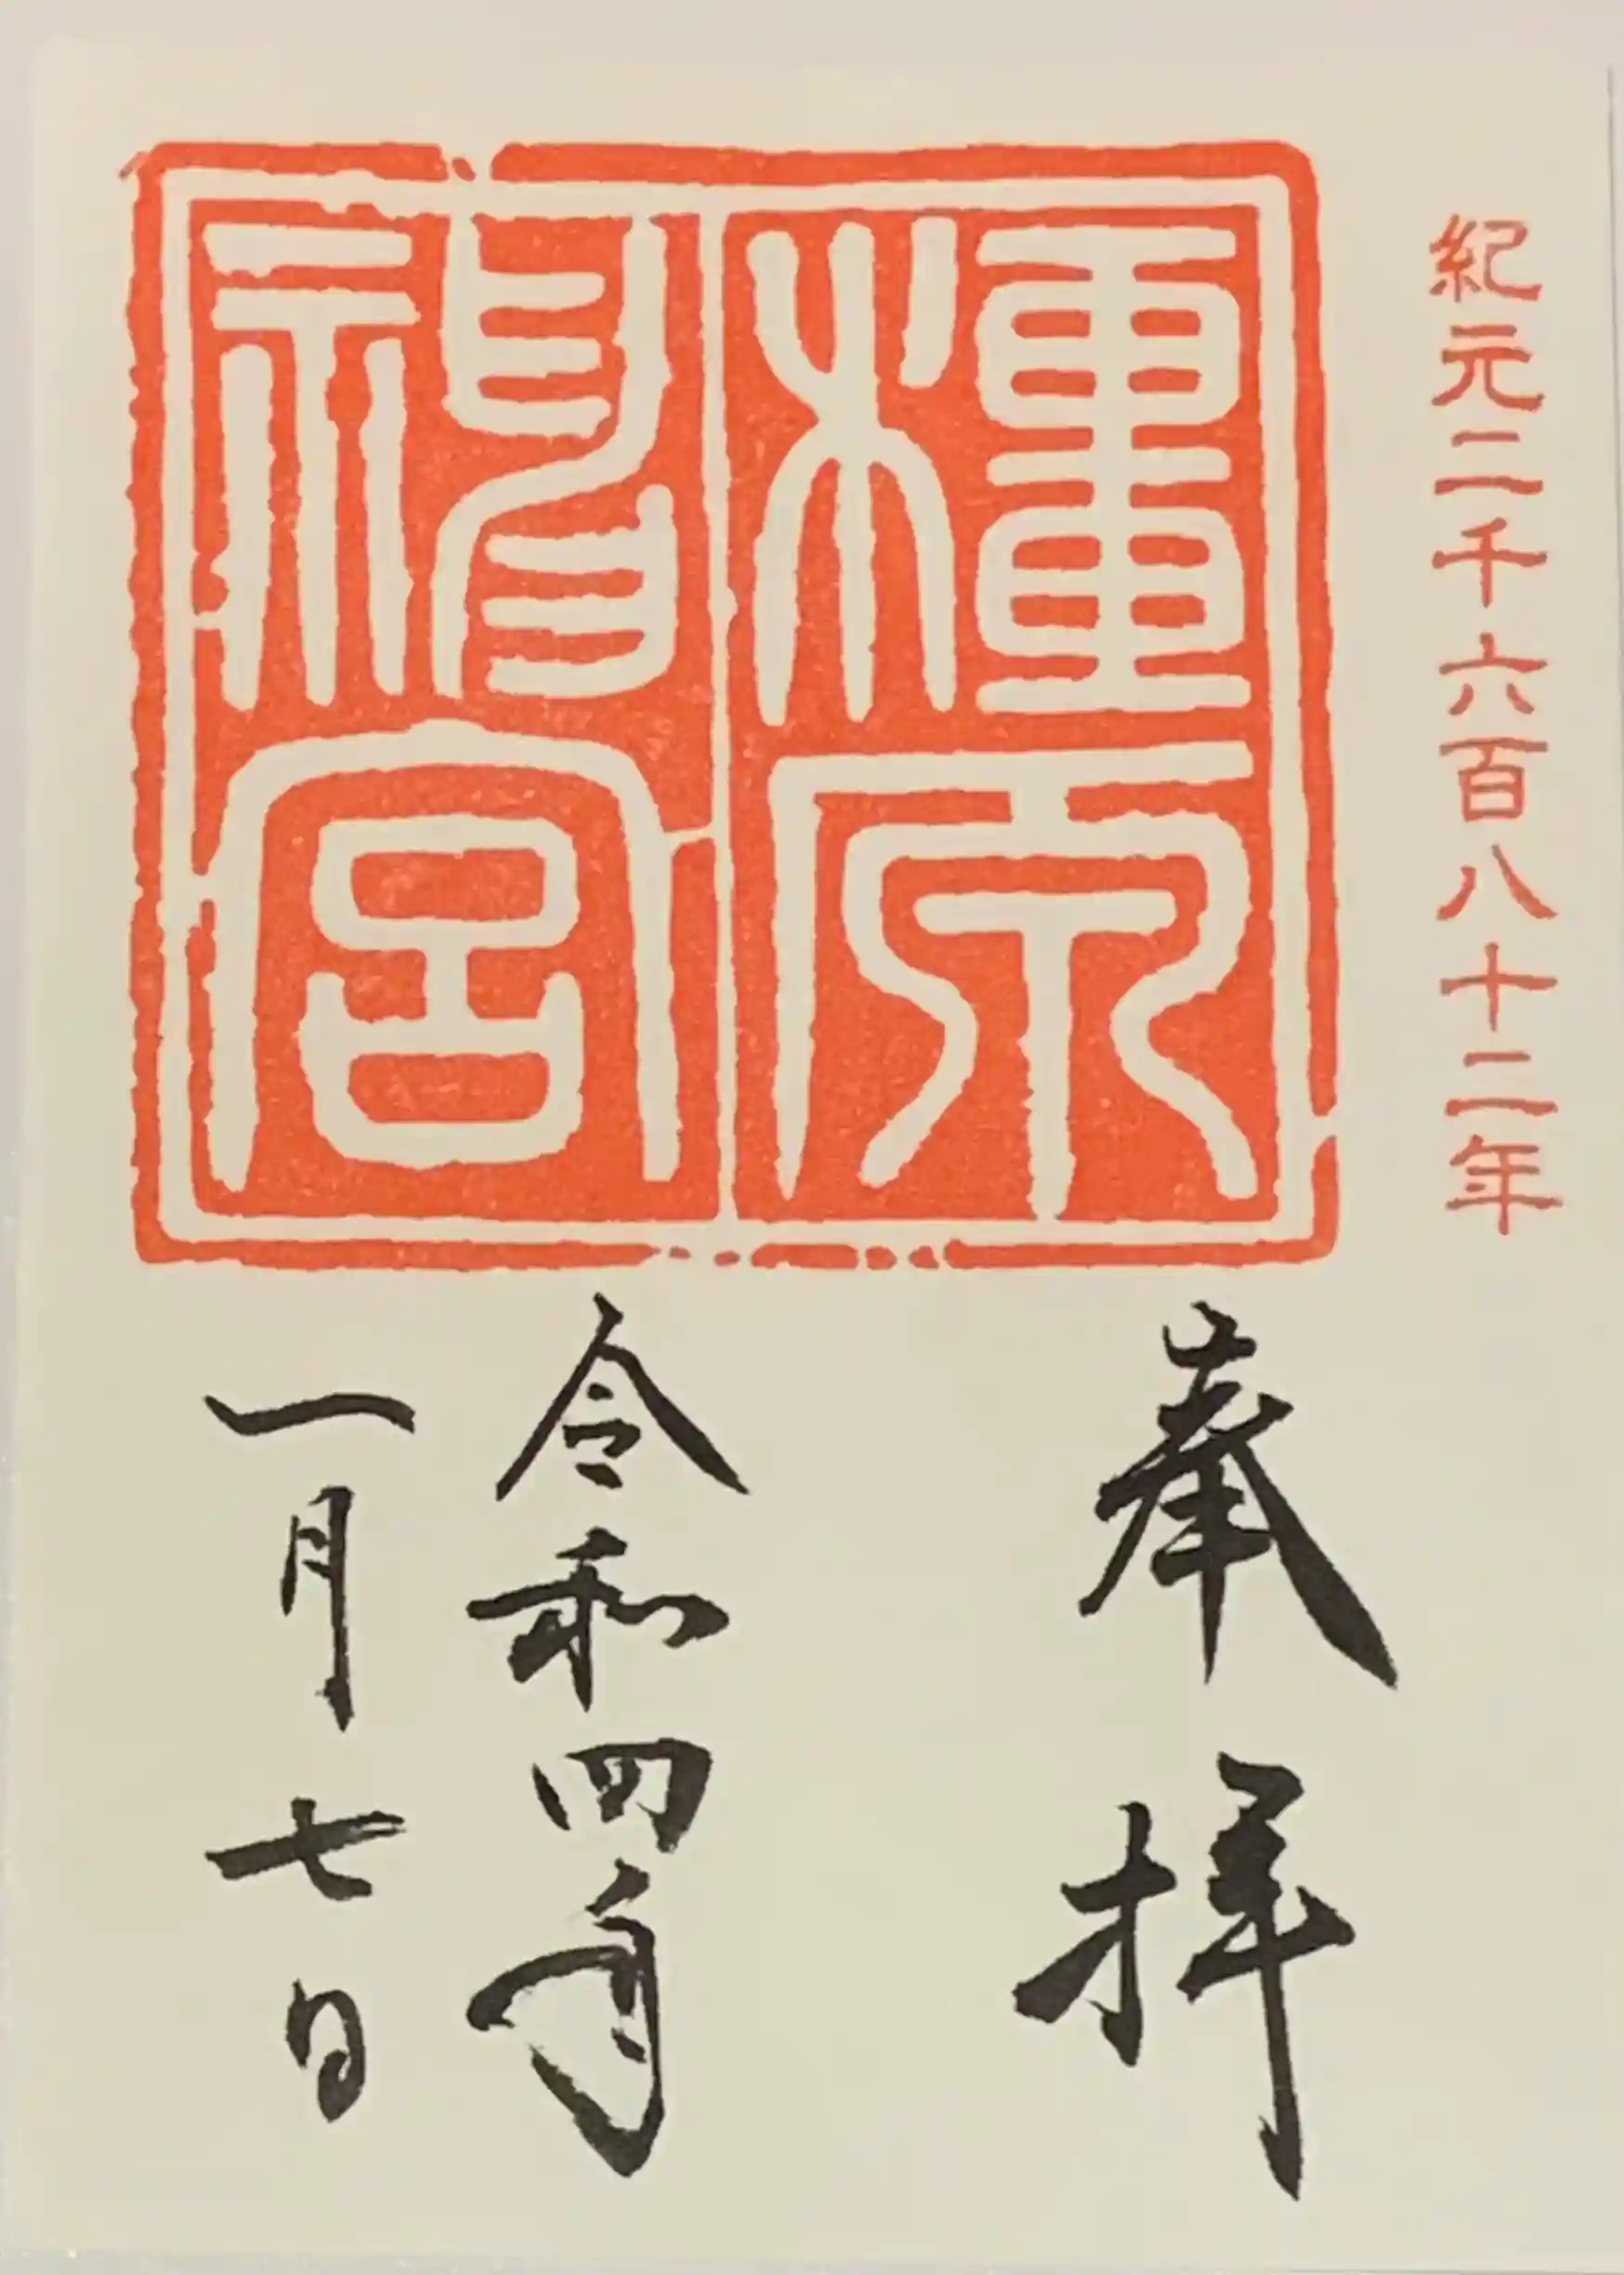 紀元二千六百八十二年
橿原
神宮
奉拝
令和四年
一月七日